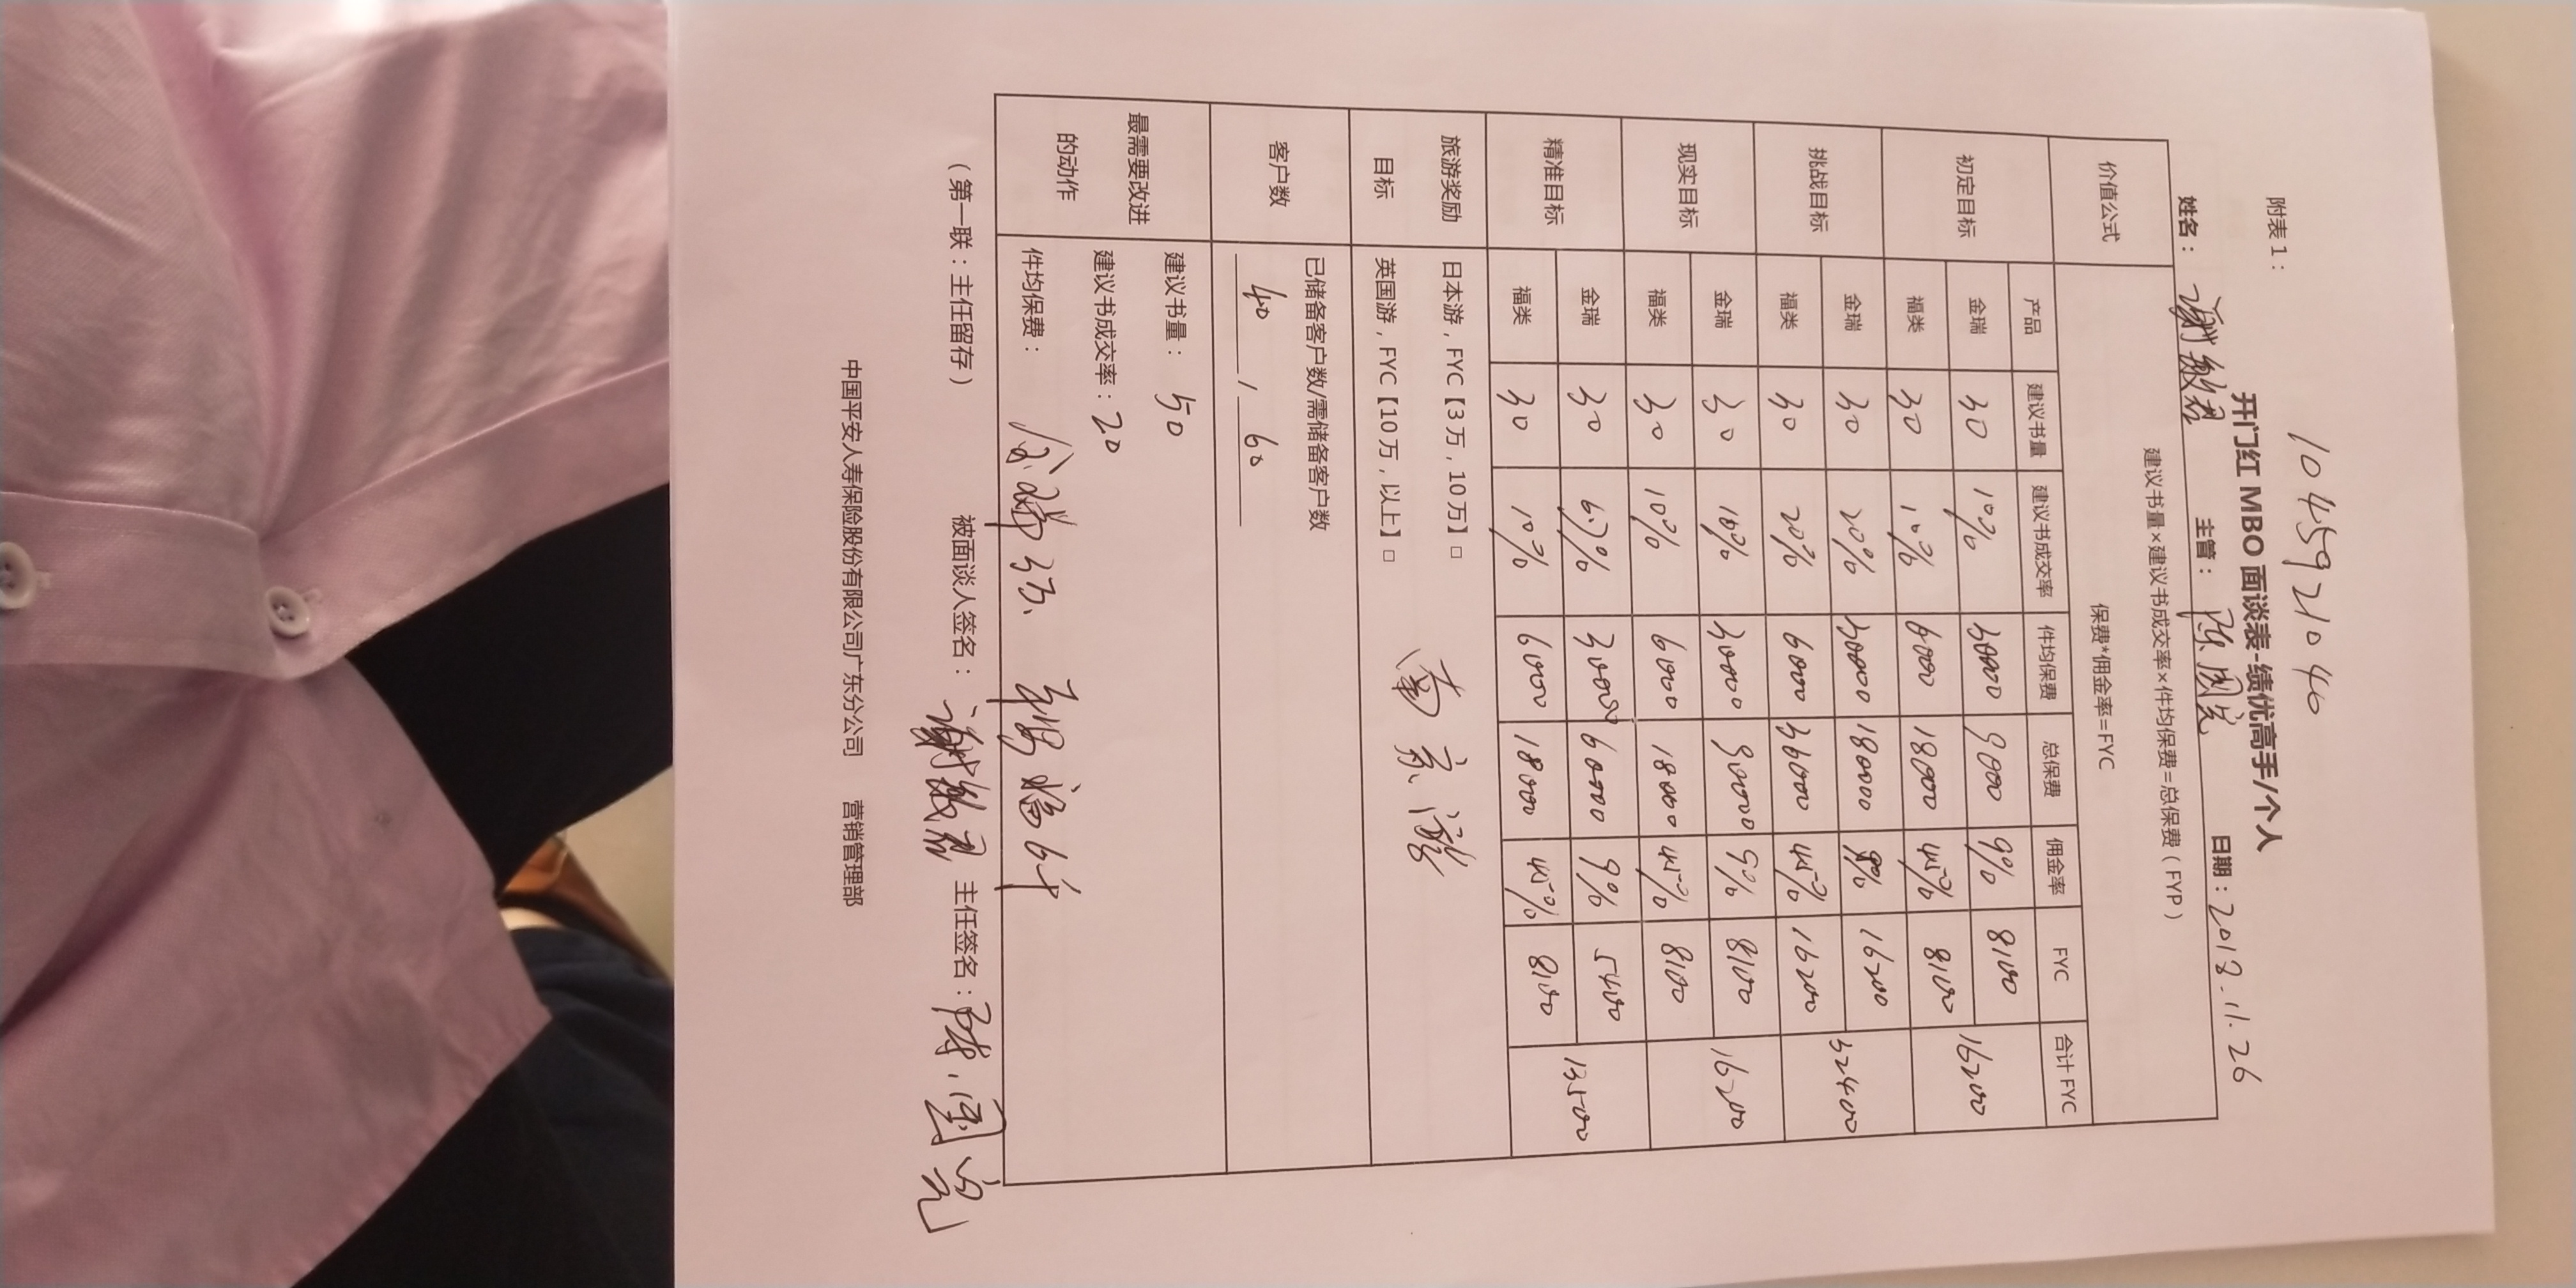 1045921040
附表 1：
开门红 MBO 面谈表-绩优高手/个人
姓名： 谢 主管： 陈国宪 日期：2018.11.26
价值公式 建议书量×建议书成交率×件均保费=总保费（FYP）
保费*佣金率=FYC
产品 建议书量 建议书成交率 件均保费 总保费 佣金率 FYC 合计 FYC
初定目标 金瑞 30 10% 30000 9000 9% 8100 16200
福类 30 10% 6000 18000 45% 8100
挑战目标 金瑞 30 20% 30000 180000 9% 16200 32400
福类 30 20% 6000 36000 45% 16200
现实目标 金瑞 30 10% 30000 90000 9% 8100 16200
福类 30 10% 6000 18000 45% 8100
精准目标 金瑞 30 6.7% 30000 60000 9% 5400 13500
福类 30 10% 6000 18000 45% 8100
旅游奖励 日本游，FYC【3 万，10 万】□
目标 英国游，FYC【10 万，以上】□ 南京游
客户数 已储备客户数/需储备客户数
40 / 60
最需要改进 建议书量： 50
的动作 建议书成交率：20
件均保费： 金瑞3万、平安福6千
（第一联：主任留存） 被面谈人签名： 谢 主任签名：陈国宪
中国平安人寿保险股份有限公司广东分公司 营销管理部